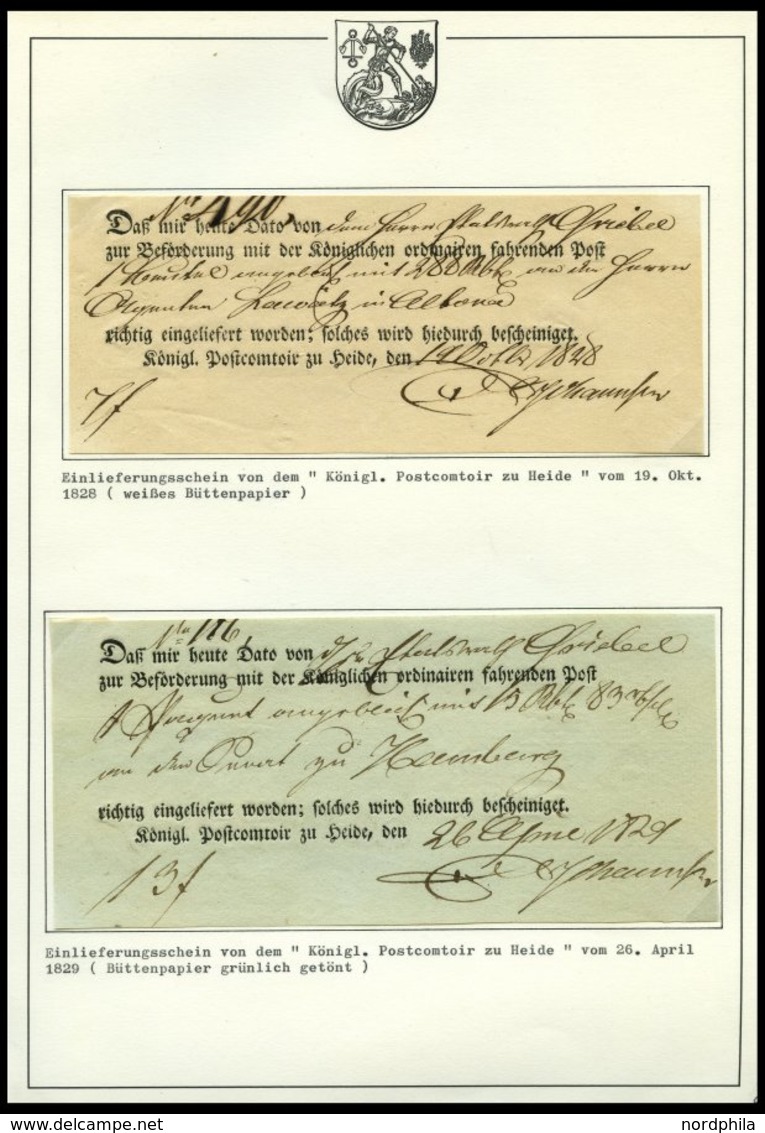 Daß mir heute Dato von dem Herrn Griebel
zur Beförderung mit der Königlichen ordinairen fahrenden Post
1 angeblich mit 288 an den Herrn
Agenten in Altona
richtig eingeliefert worden; solches wird hiedurch bescheiniget.
Königl. Postcomtoir zu Heide, den 19 Octbr 1828
Johannsen
Einlieferungsschein von dem " Königl. Postcomtoir zu Heide " vom 19. Okt.
1828 ( weißes Büttenpapier )
No 116
Daß mir heute Dato von Griebel
zur Beförderung mit der Königlichen ordinairen fahrenden Post
angeblich mit 15 83
zu Hamburg
richtig eingeliefert worden; solches wird hiedurch bescheiniget.
Königl. Postcomtoir zu Heide, den 26 April 1829
Johannsen
Einlieferungsschein von dem " Königl. Postcomtoir zu Heide " vom 26. April
1829 ( Büttenpapier grünlich getönt )
nordphila